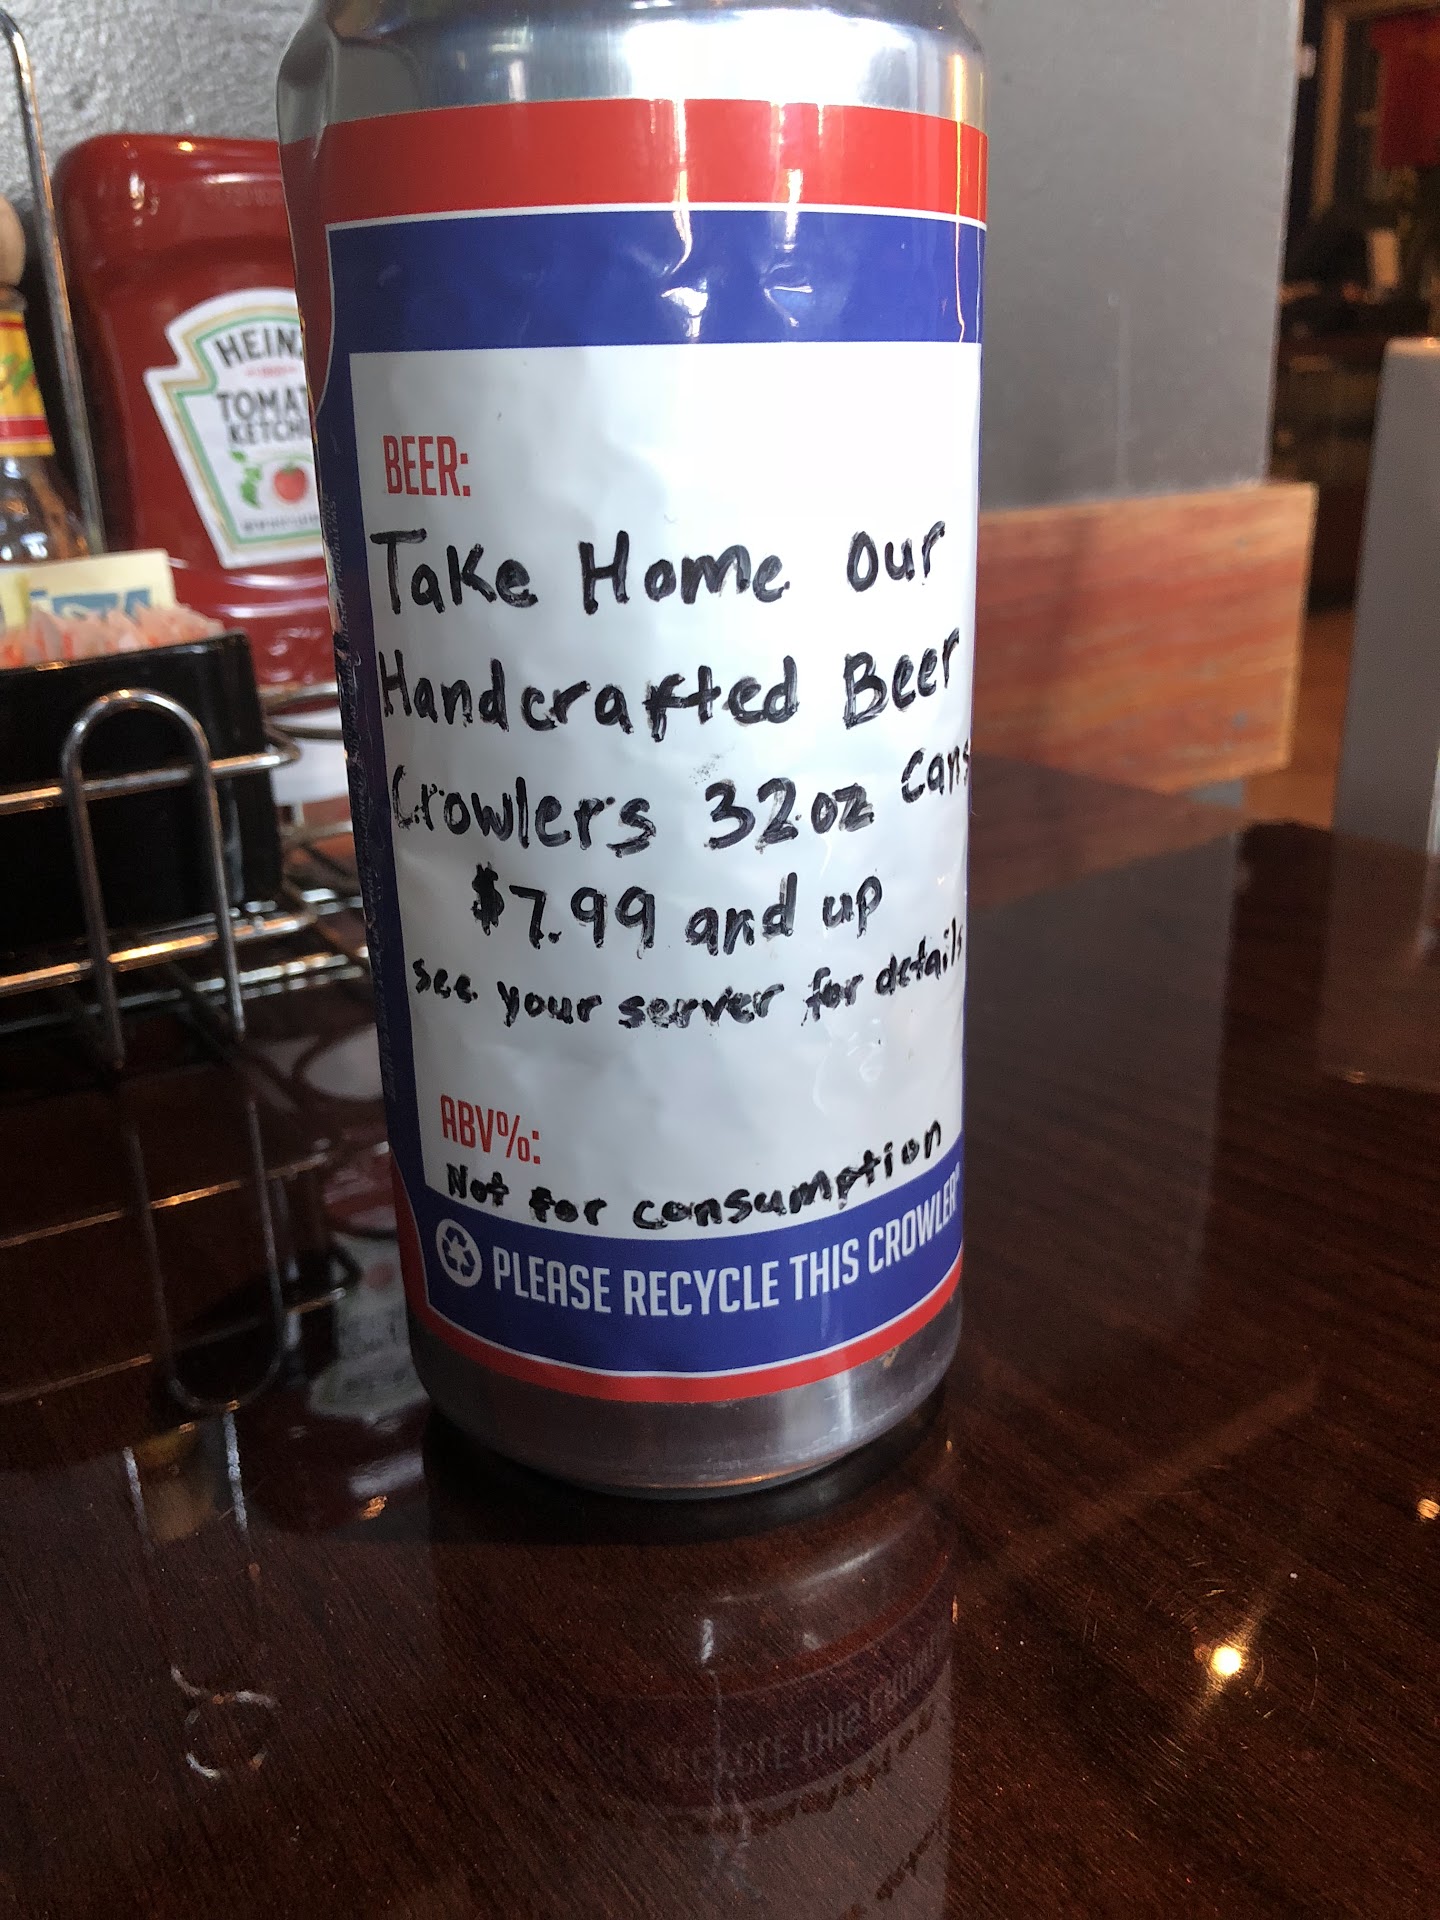 BEER:
Take Home Our
Handcrafted Beer
Crowlers 32oz cans
$7.99 and up
see your server for details
ABV%:
Not for consumption
PLEASE RECYCLE THIS CROWLER
HEINZ
TOMATO
KETCHUP